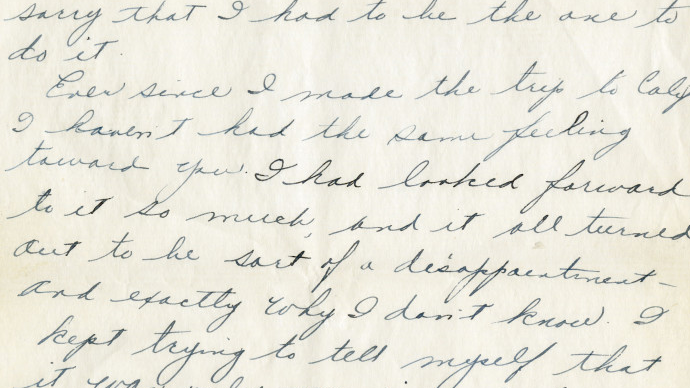 sorry that I had to be the one to
do it.
Ever since I made the trip to Calif
I haven't had the same feeling
toward you. I had looked forward
to it so much, and it all turned
out to be sort of a disappointment-
and exactly why I don't know. I
kept trying to tell myself that
it